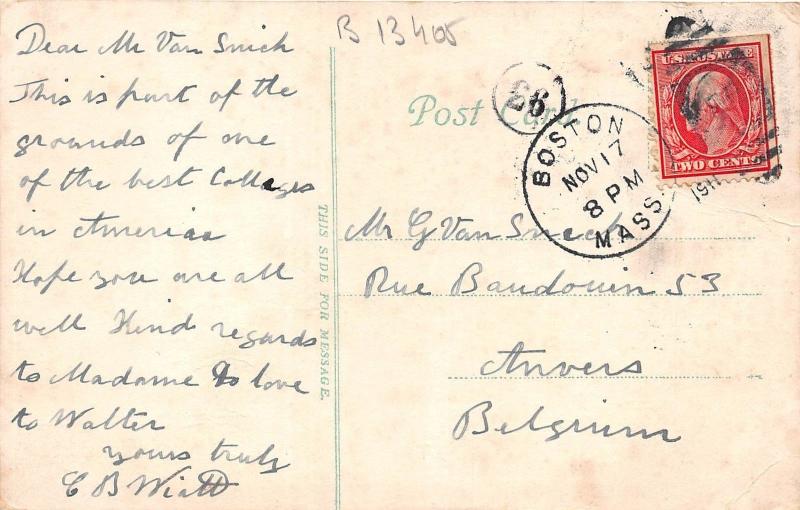 Dear Mr Van Snick
This is part of the
grounds of one
of the best Colleges
in America
Hope you are all
well Kind regards
to Madame & love
to Walter
yours truly
C B Wiatt
B 13405
THIS SIDE FOR MESSAGE.
Post Card
66
BOSTON
NOV 17
8 PM
1911
MASS.
U.S. POSTAGE
TWO CENTS
Mr G Van Snick
Rue Baudouin 53
Anvers
Belgrium